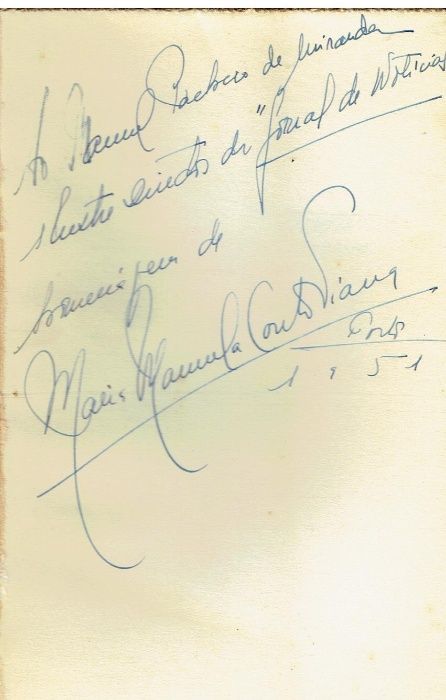 Ao Manuel Pacheco de Miranda
ilustre Director do "Jornal de Notícias
homenagem de
Maria Manuela Couto Viana
Porto
1951